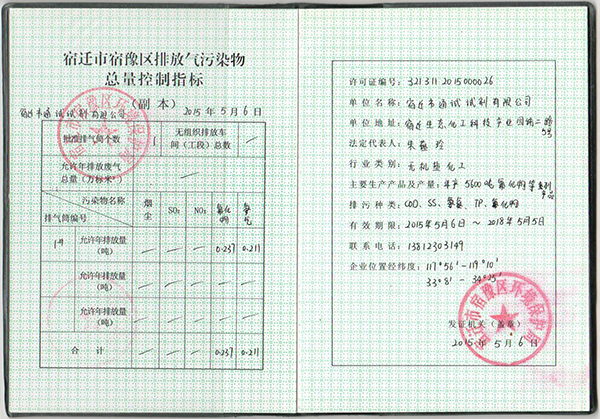 宿迁市宿豫区排放气污染物
总量控制指标
(副 本) 2015年5月6日
宿迁市通试试剂有限公司
批准排气筒个数 1 无组织排放车间(工段)总数 —
允许年排放废气总量(万标米³) —
污染物名称 排气筒编号 烟尘 SO₂ NOₓ 氯化物 氨气
1# 允许年排放量(吨) — — — 0.237 0.211
允许年排放量(吨) — — — — —
允许年排放量(吨) — — — — —
合 计 — — — 0.237 0.211
宿迁市宿豫区环境保护局
许可证编号: 321311 2015000026
单 位 名 称: 宿迁市通试试剂有限公司
单 位 地 址: 宿迁生态化工科技产业园纬二路
5号
法定代表人: 朱
行 业 类 别: 无机盐化工
主要生产产品及产量: 年产5600吨氟化物等系列
产品
排 污 种 类: COD、SS、氨氮、TP、氟化物
有 效 期 限: 2015年5月6日 ~ 2018年5月5日
联 系 电 话: 13812303149
企业位置经纬度: 117°56′-119°10′
33°8′ - 34°25′
宿迁市宿豫区环境保护局
发证机关(盖章)
2015年5月6日